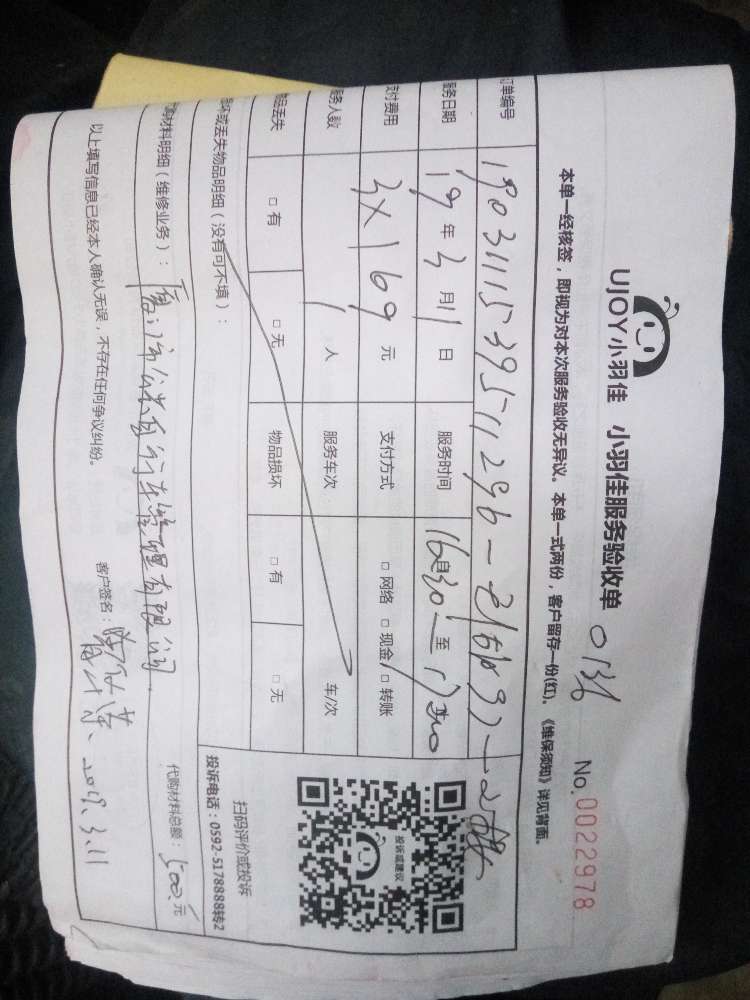 UJOY小羽佳 小羽佳服务验收单
No.0022978
本单一经核签，即视为对本次服务验收无异议。本单一式两份，客户留存一份(红)。《维保须知》详见背面。
订单编号
服务日期 19年3月11日 服务时间 至
支付费用 3×169元 支付方式 □网络 □现金 □转账
服务人数 1人 服务车次 车/次
物品丢失 □有 □无 物品损坏 □有 □无
损坏或丢失物品明细（没有可不填）：
投诉或建议
扫码评价或投诉
投诉电话：0592-5178888转2
代购材料明细（维修业务）： 代购材料总额：500元
以上填写信息已经本人确认无误，不存在任何争议纠纷。
客户签名： 2019.3.11